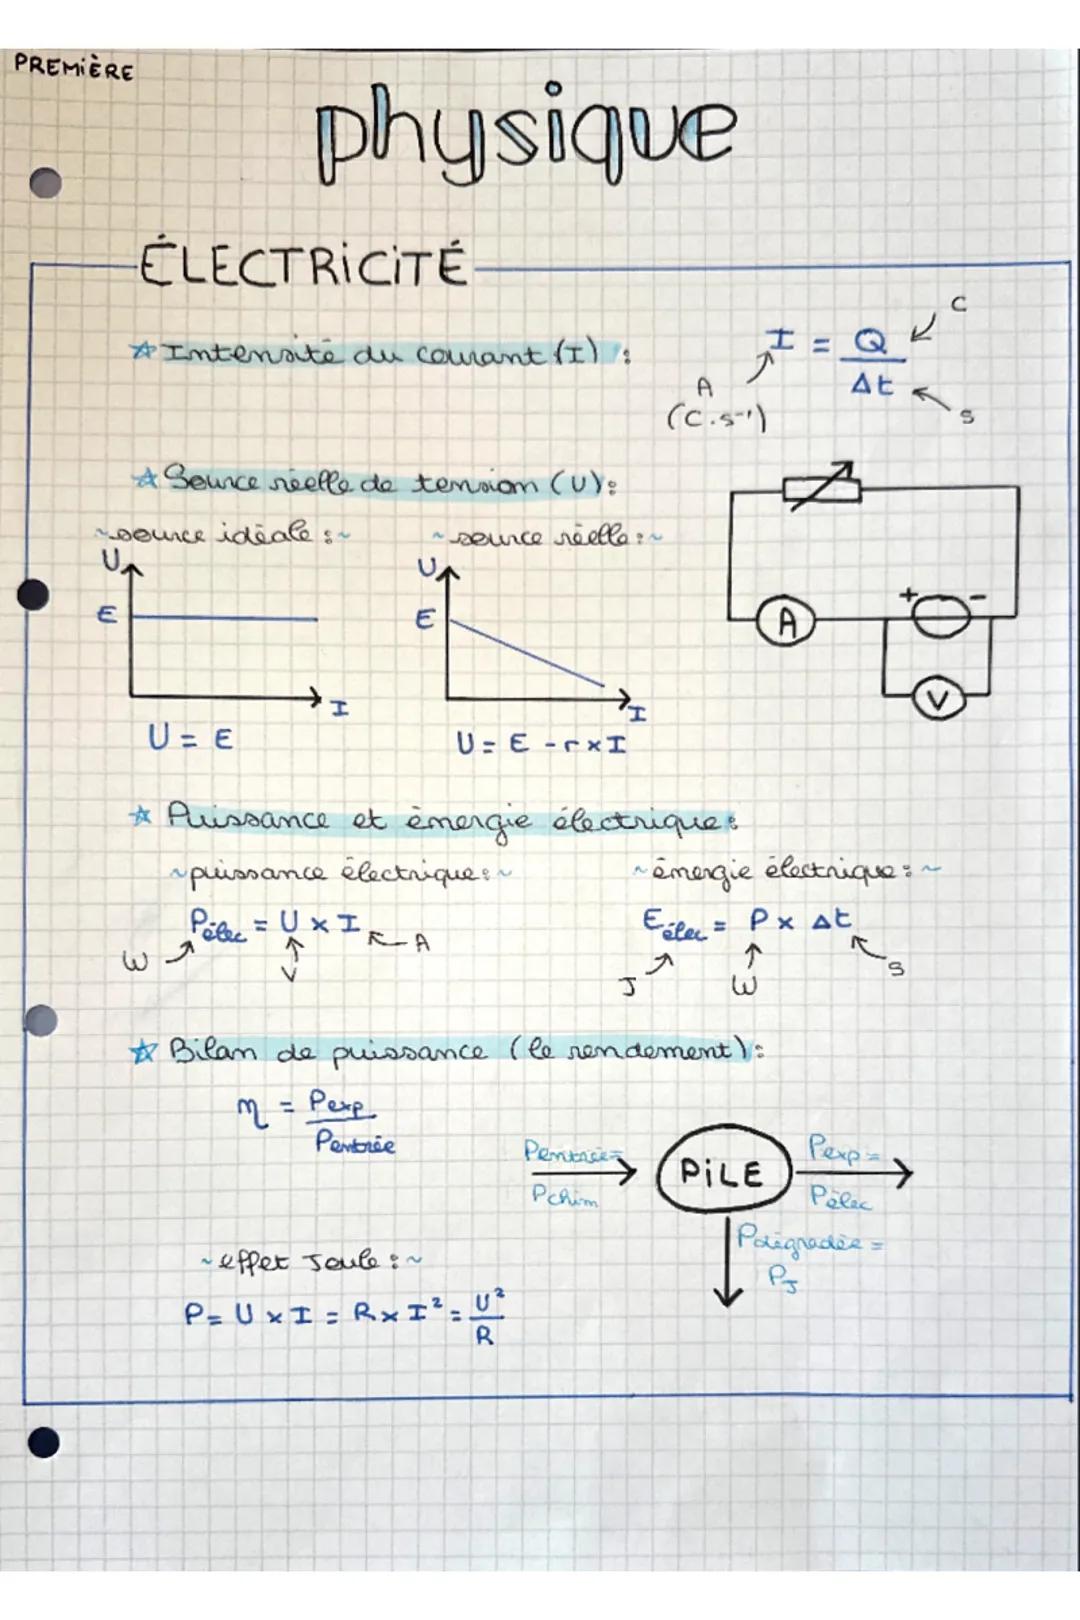 PREMIÈRE
physique
ÉLECTRICITÉ
☆ Intensité du courant (I) : I = Q / Δt
C
A
(C.s⁻¹)
s
☆ Source réelle de tension (U) :
~ source idéale : ~ ~ source réelle : ~
U U
E E
A + -
V
I I
U = E U = E - r x I
☆ Puissance et énergie électrique :
~ puissance électrique : ~ ~ énergie électrique : ~
Pélec = U x I Eélec = P x Δt
W V A J W s
☆ Bilan de puissance (le rendement) :
η = Pexp / Pentrée
Pentrée = Pchim PILE Pexp = Pélec
Pdégradée = PJ
~ effet Joule : ~
P = U x I = R x I² = U² / R